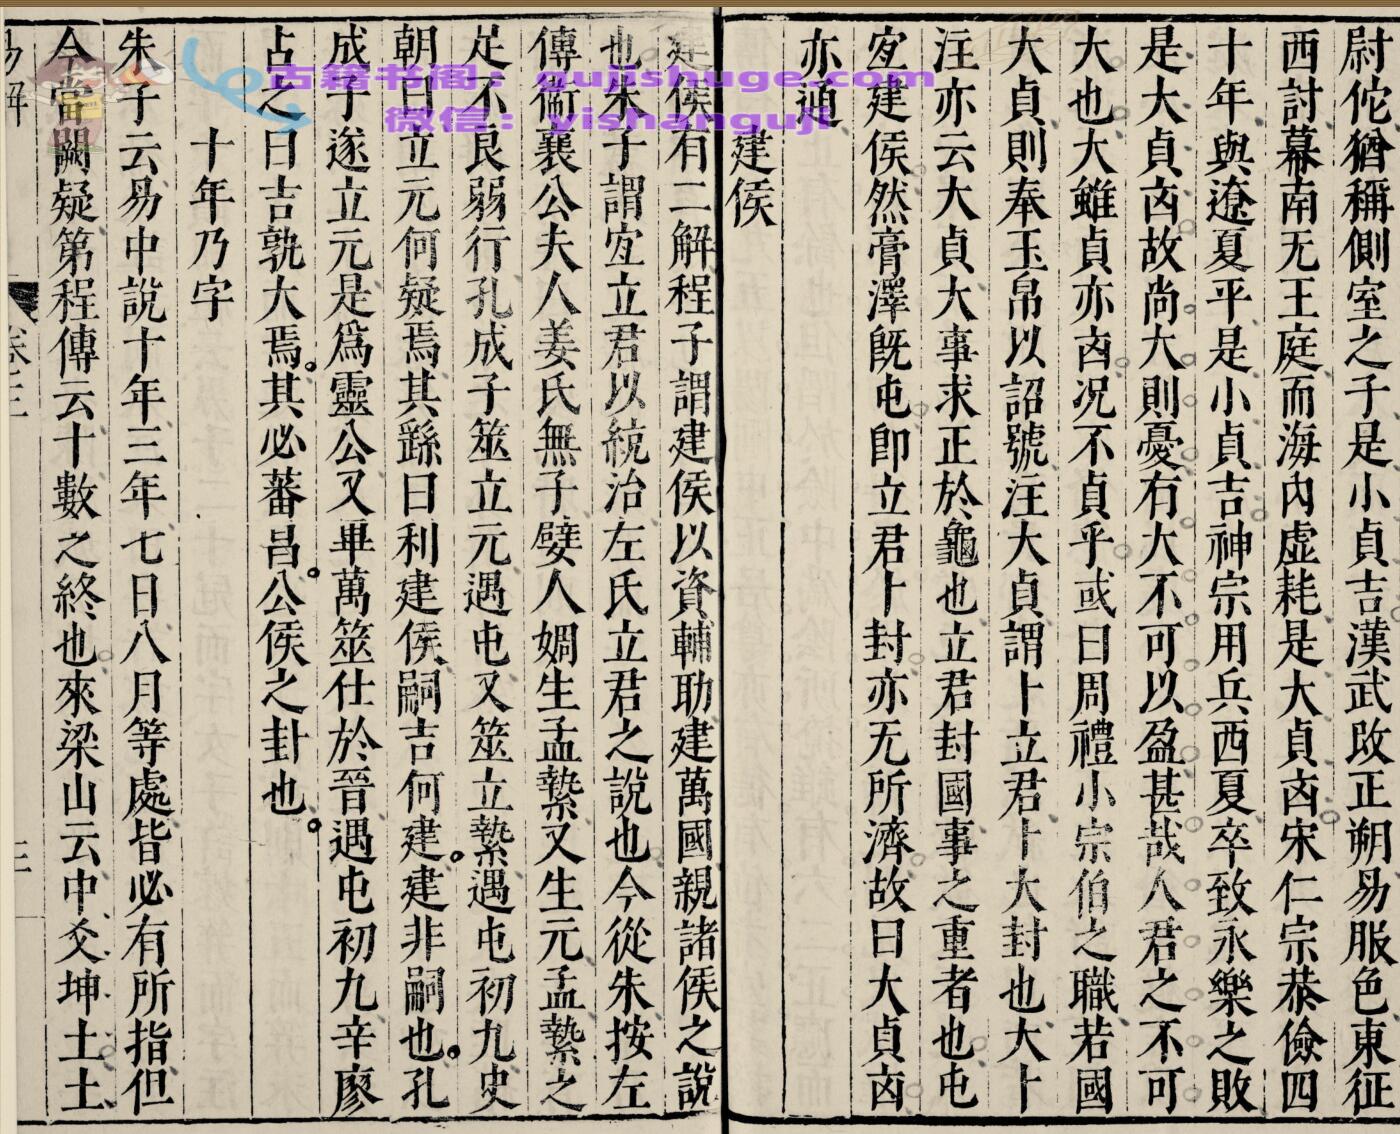 尉佗猶稱側室之子是小貞吉漢武改正朔易服色東征
西討幕南无王庭而海內虛耗是大貞凶宋仁宗恭儉四
十年與遼夏平是小貞吉神宗用兵西夏卒致永樂之敗
是大貞凶故尚大則憂有大不可以盈甚哉人君之不可
大也大雖貞亦凶况不貞乎或曰周禮小宗伯之職若國
大貞則奉玉帛以詔號注大貞謂卜立君卜大封也大卜
注亦云大貞大事求正於龜也立君封國事之重者也屯
宐建侯然膏澤旣屯卽立君卜封亦无所濟故曰大貞凶
亦通
建侯
建侯有二解程子謂建侯以資輔助建萬國親諸侯之說
也朱子謂宐立君以統治左氏立君之說也今從朱按左
傳衞襄公夫人姜氏無子嬖人婤生孟縶又生元孟縶之
足不良弱行孔成子筮立元遇屯又筮立縶遇屯初九史
朝曰立元何疑焉其繇曰利建侯嗣吉何建建非嗣也孔
成子遂立元是爲靈公又畢萬筮仕於晉遇屯初九辛廖
占之曰吉孰大焉其必蕃昌公侯之封也
十年乃字
朱子云易中說十年三年七日八月等處皆必有所指但
今當闕疑第程傳云十數之終也來梁山云中爻坤土土
易解
卷三
三
古籍书阁：gujishuge.com
微信：yishanguji